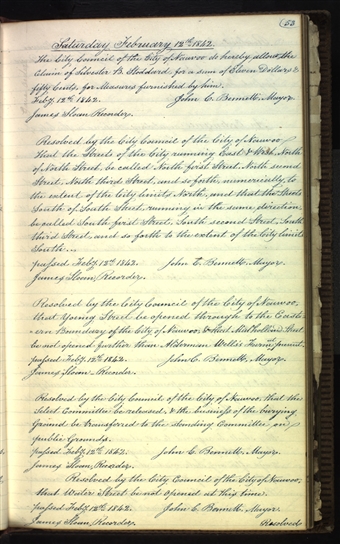 53
Saturday, February 12th. 1842.
The City Council of the City of Nauvoo do hereby allow, the
Claim of Silvester B. Stoddard, for a sum of Eleven Dollars &
fifty Cents, for Measures furnished by him.
Feby. 12th. 1842. John C. Bennett, Mayor.
James Sloan, Recorder.
Resolved by the City Council of the City of Nauvoo
that the Streets of the City running East & West, North
of North Street, be called North first Street, North second
Street, North third Street, and so forth, numerically, to
the extent of the City limits North, and that the Streets
South of South Street, running in the same direction,
be called South first Street, South second Street, South
third Street, and so forth to the extent of the City limits
South.
passed Feby. 12th. 1842. John C. Bennett, Mayor.
James Sloan, Recorder.
Resolved by the City Council of the City of Nauvoo,
that Young Street be opened through to the East-
ern Boundary of the City of Nauvoo, & that Mulholland Street
be not opened further than Alderman Wells's Farm at present.
passed Feby. 12th. 1842. John C. Bennett, Mayor.
James Sloan, Recorder.
Resolved by the City Council of the City of Nauvoo, that the
Select Committee be released, & the business of the burying
Ground be transferred to the standing Committee on
public Grounds.
passed Feby. 12th. 1842. John C. Bennett, Mayor.
James Sloan, Recorder.
Resolved by the City Council of the City of Nauvoo,
that Water Street be not opened at this time.
passed Feby. 12th. 1842. John C. Bennett, Mayor.
James Sloan, Recorder. Resolved